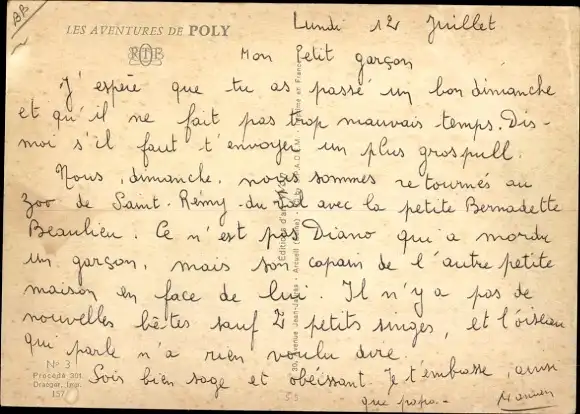 BB
LES AVENTURES DE POLY
Lundi 12 Juillet
Mon Petit garçon
J'espère que tu as passé un bon dimanche
et qu'il ne fait pas trop mauvais temps. Dis-
moi s'il faut t'envoyer un plus gros pull.
Nous, dimanche, nous sommes retournés au
zoo de Saint-Rémy-du Val avec la petite Bernadette
Beaulieu. Ce n'est pas Diano qui a mordu
un garçon, mais son copain de l'autre petite
maison en face de lui. Il n'y a pas de
nouvelles bêtes sauf 2 petits singes, et l'oiseau
qui parle n'a rien voulu dire.
Sois bien sage et obéissant. Je t'embrasse, ainsi
que papa.
Maman
N° 3
Procédé 301
Draeger, imp.
157
55
Editions d'art
30, Avenue Jean-Jaurès - Arcueil